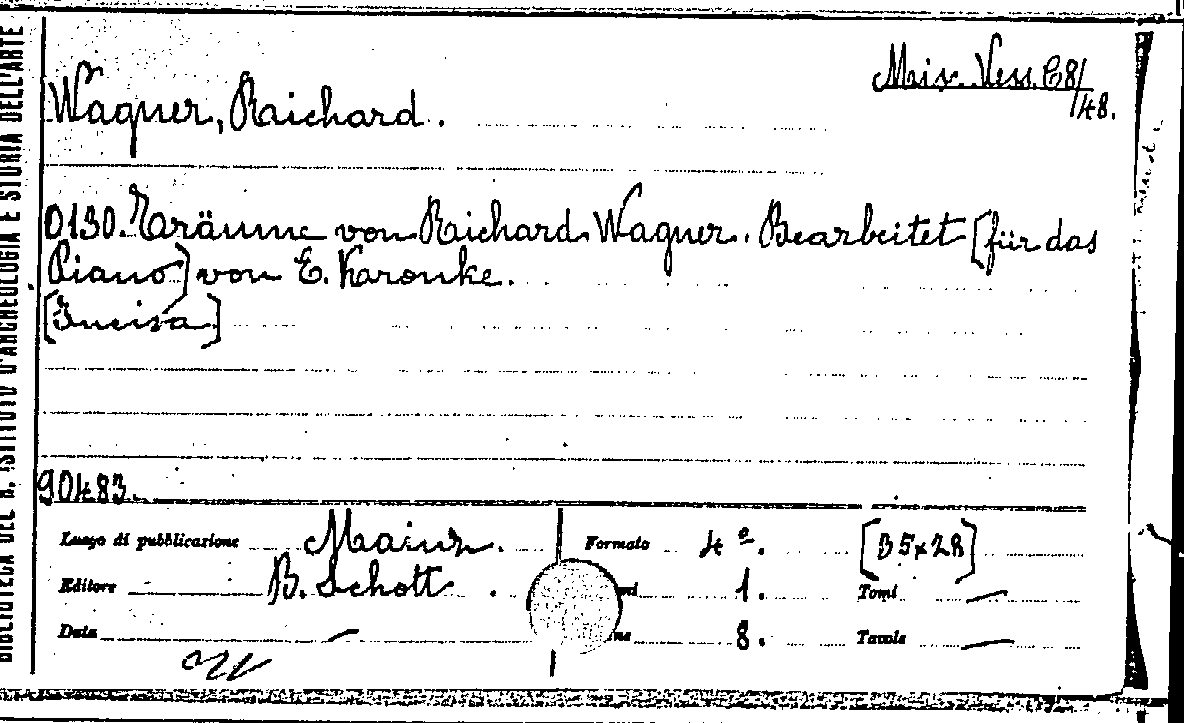 BIBLIOTECA DEL R. ISTITUTO D'ARCHEOLOGIA E STORIA DELL'ARTE
Misc. Vess. C8/48.
Wagner, Richard.
0130. Träume von Richard Wagner. Bearbeitet [für das
Piano] von E. Kronke.
[Incisa]
90483.
Luogo di pubblicazione Mainz. Formato 4º. [35x28]
Editore B. Schott. 1. Tomi —
Data — 8. Tavole —